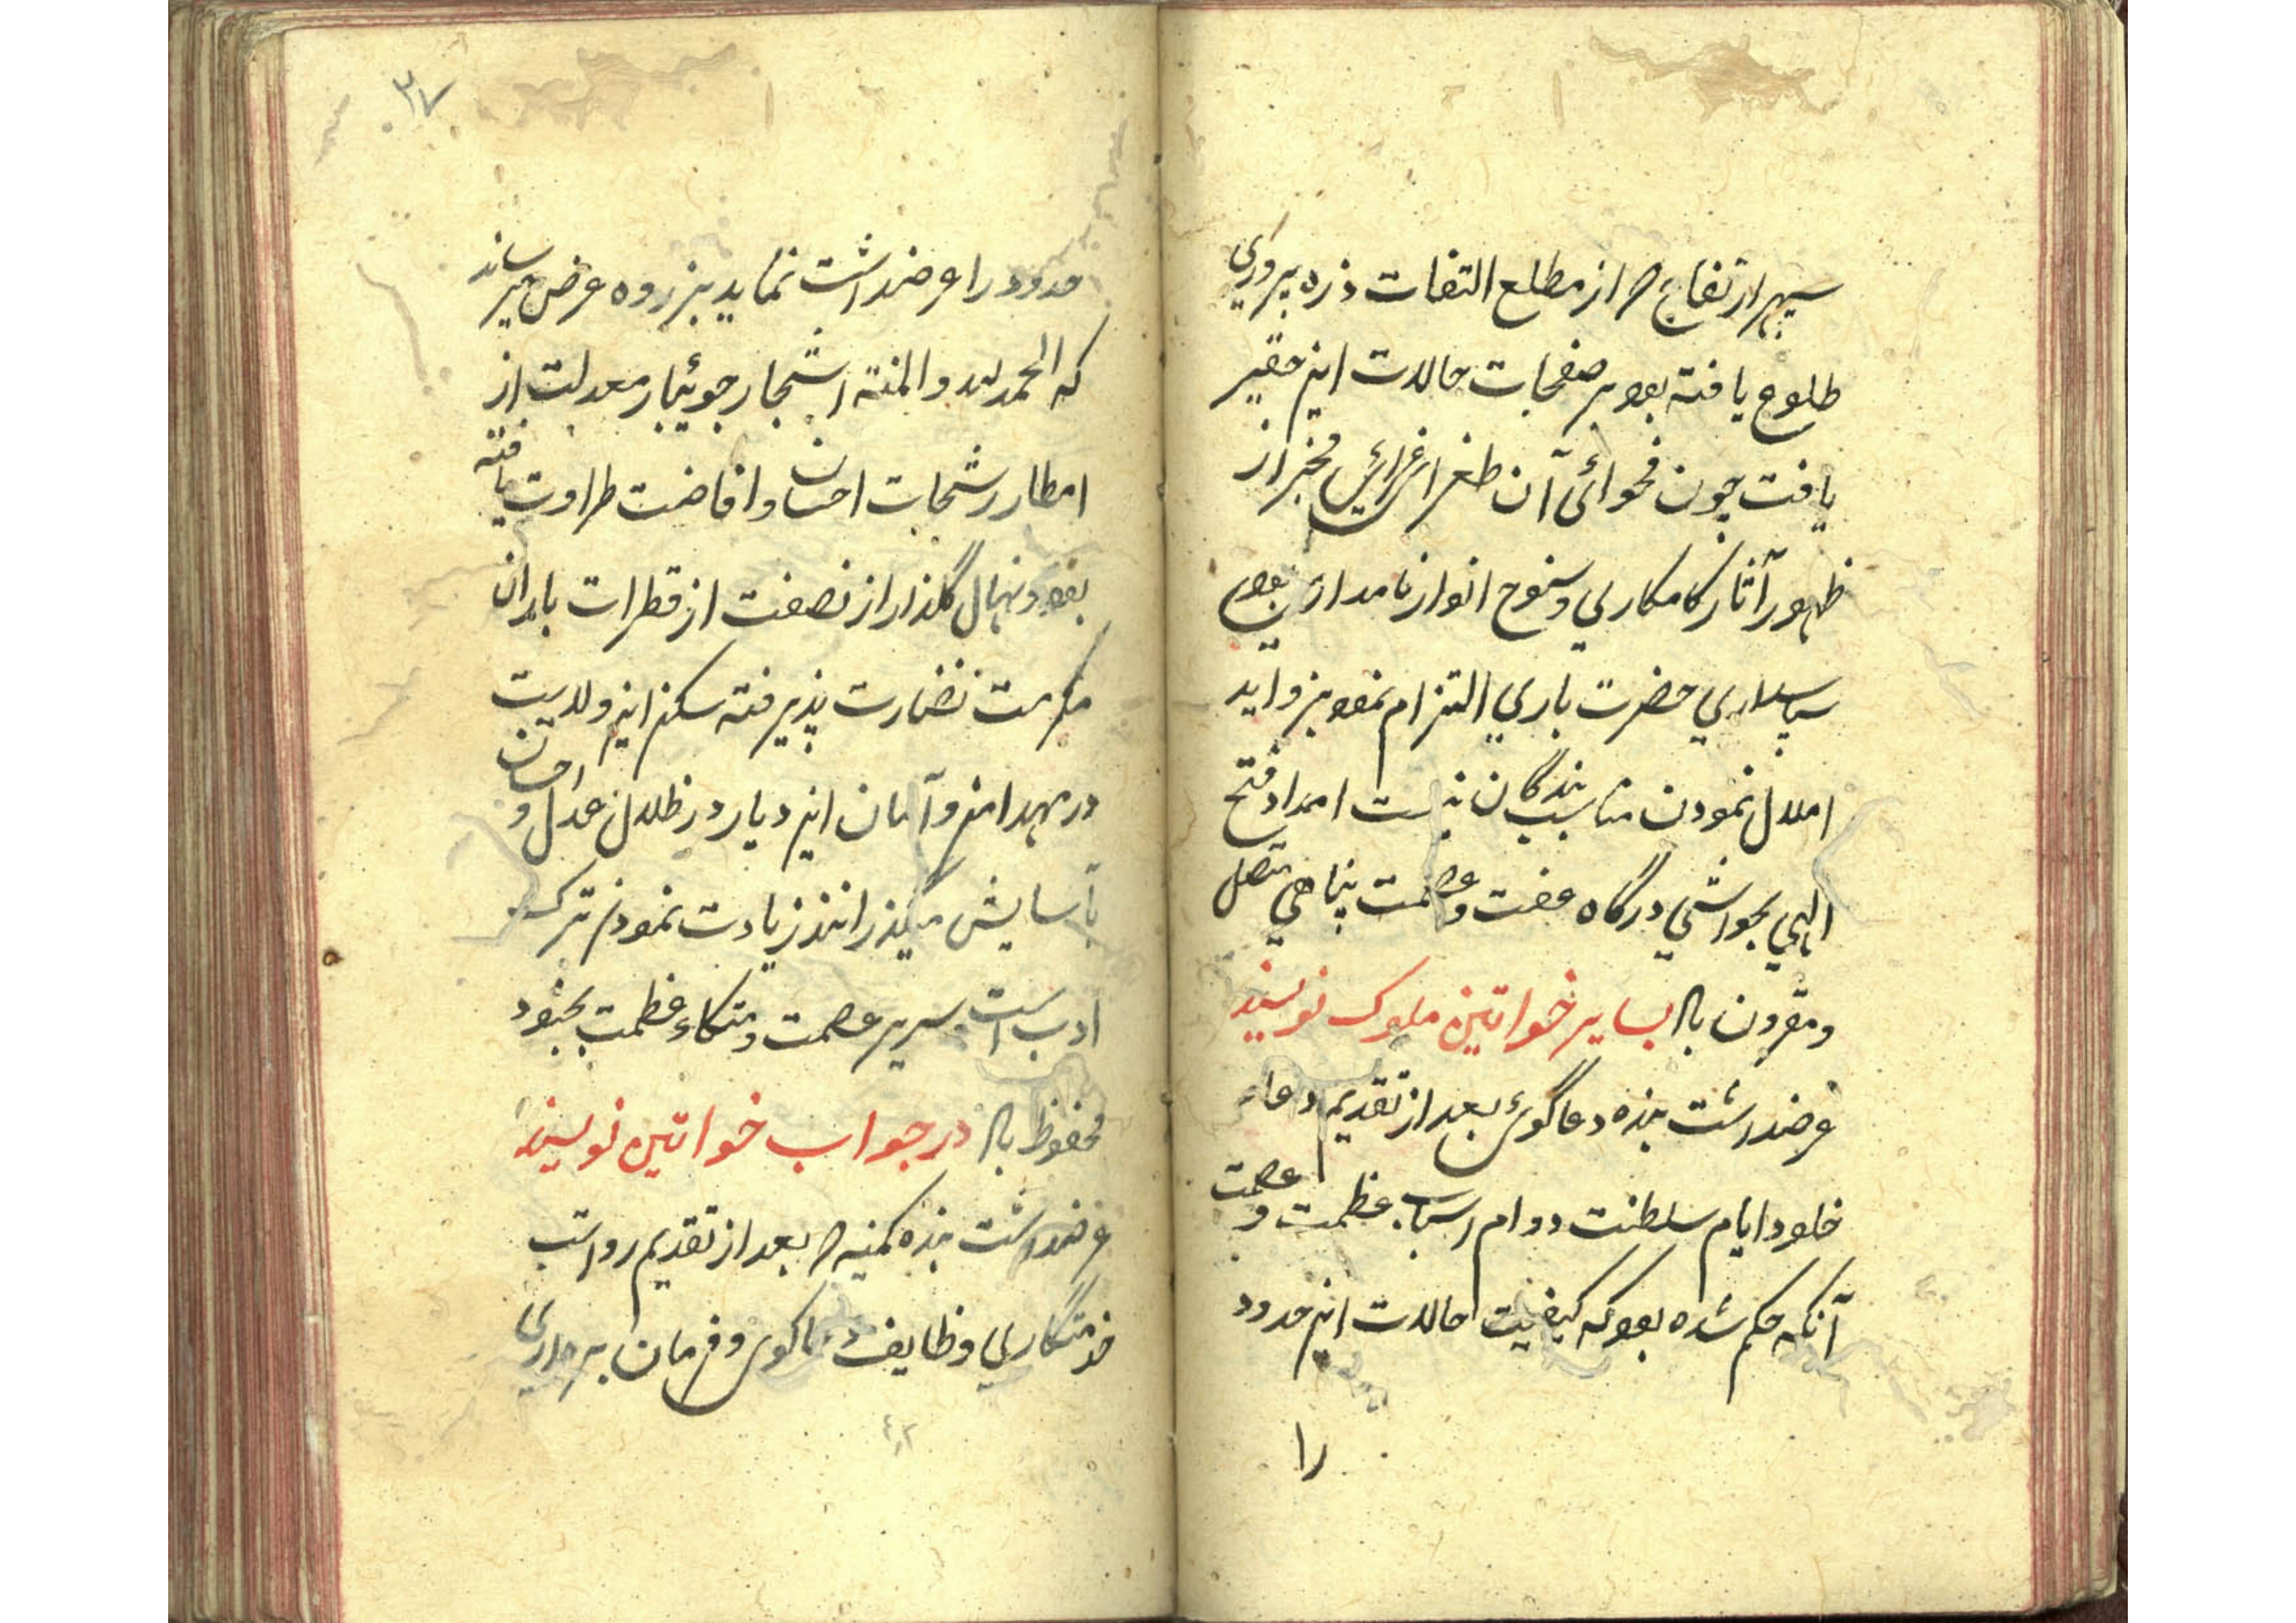 سپهر ارتفاع از مطلع التفات ذره پروری
طلوع یافته بود بر صفحات حالات این حقیر
یافت چون فحوائی آن طغرا غرائی مخبر از
ظهور آثار کامکاری و سنوح انوار نامداری بود
سپاسداری حضرت باری التزام نمود بزواید
املال نمودن مناسب بندگان نیست امداد فتح
الهی بحواشی درگاه عفت و عصمت پناهی متصل
و مقرون باد بسایر خواتین ملوک نویسند
عرضداشت بنده دعاگوی بعد از تقدیم دعاء
خلود ایام سلطنت دوام اسباب عظمت و عصمت
آنکه حکم شده بود که کیفیت حالات این حدود
را
۳۷
حدود را عرضداشت نماید بذروه عرض میرساند
که الحمد لله و المنه اشجار جوئبار معدلت از
امطار رشحات احسان و افاضت طراوت یافته
بود و نهال گلذار از نصفت از قطرات باران
مکرمت نضارت پذیرفته سکنه این ولایت
در مهد امن و آمان این دیار در ظلال عدل و احسان
بآسایش میگذرانند زیادت نمودن ترک
ادب است سریر عصمت و متکاء عظمت بجنود
محفوظ باد در جواب خواتین نویسند
عرضداشت بنده کمینه بعد از تقدیم رواتب
خدمتگاری وظایف دعاگوی و فرمان برداری